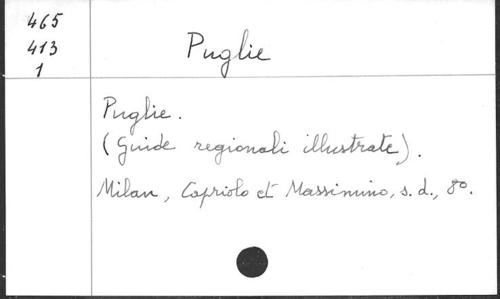 465
413
1
Puglie
Puglie.
(Guide regionali illustrate).
Milan, Capriolo et Massimino, s.d., 8o.